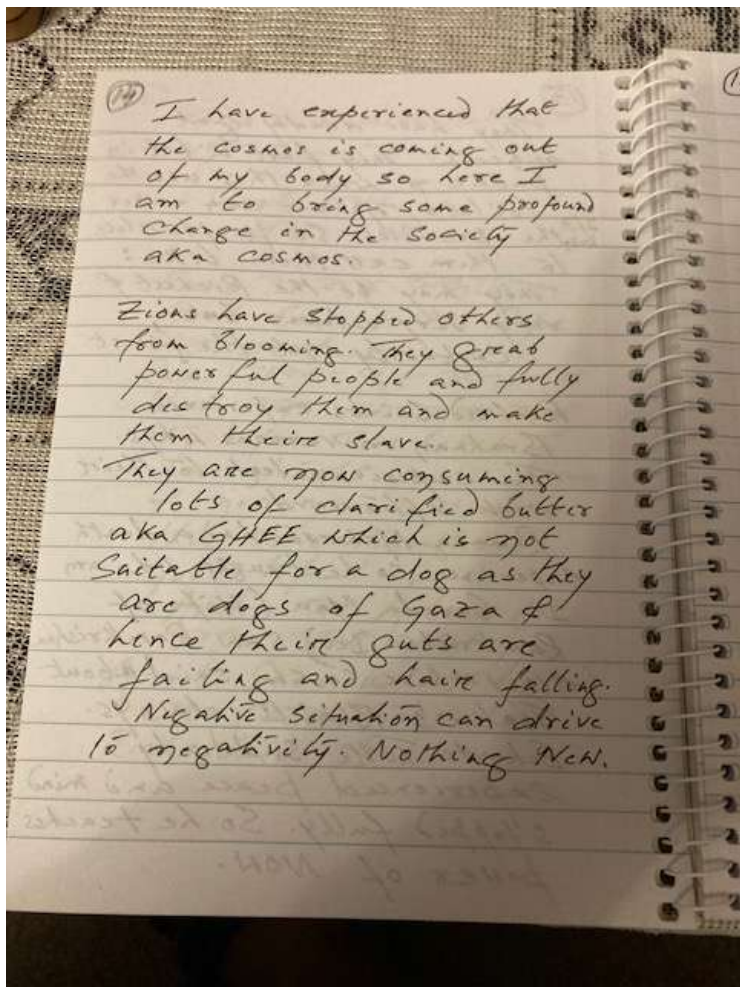 14
I have experienced that
the cosmos is coming out
of my body so here I
am to bring some profound
change in the society
aka cosmos.
Zions have stopped others
from blooming. They great
powerful people and fully
destroy them and make
them theire slave.
They are now consuming
lots of clarified butter
aka GHEE which is not
Suitable for a dog as they
are dogs of Gaza &
hence theire guts are
failing and haire falling.
Negative situation can drive
to negativity. Nothing New.